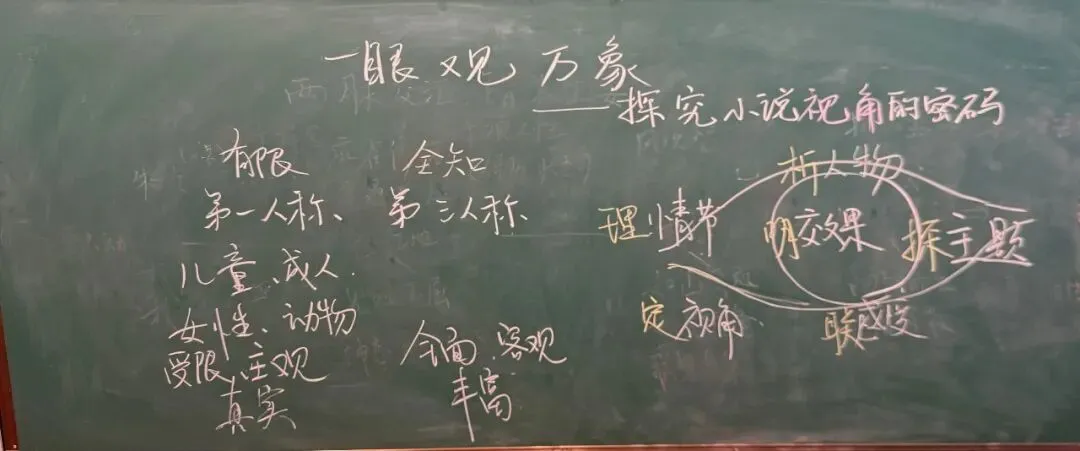 一眼观万象
——探究小说视角的密码
有限 全知
第一人称、 第三人称、
儿童、成人、
女性、动物
受限、主观 全面、客观
真实 丰富
析人物
理情节 明效果 探主题
定视角 联感受